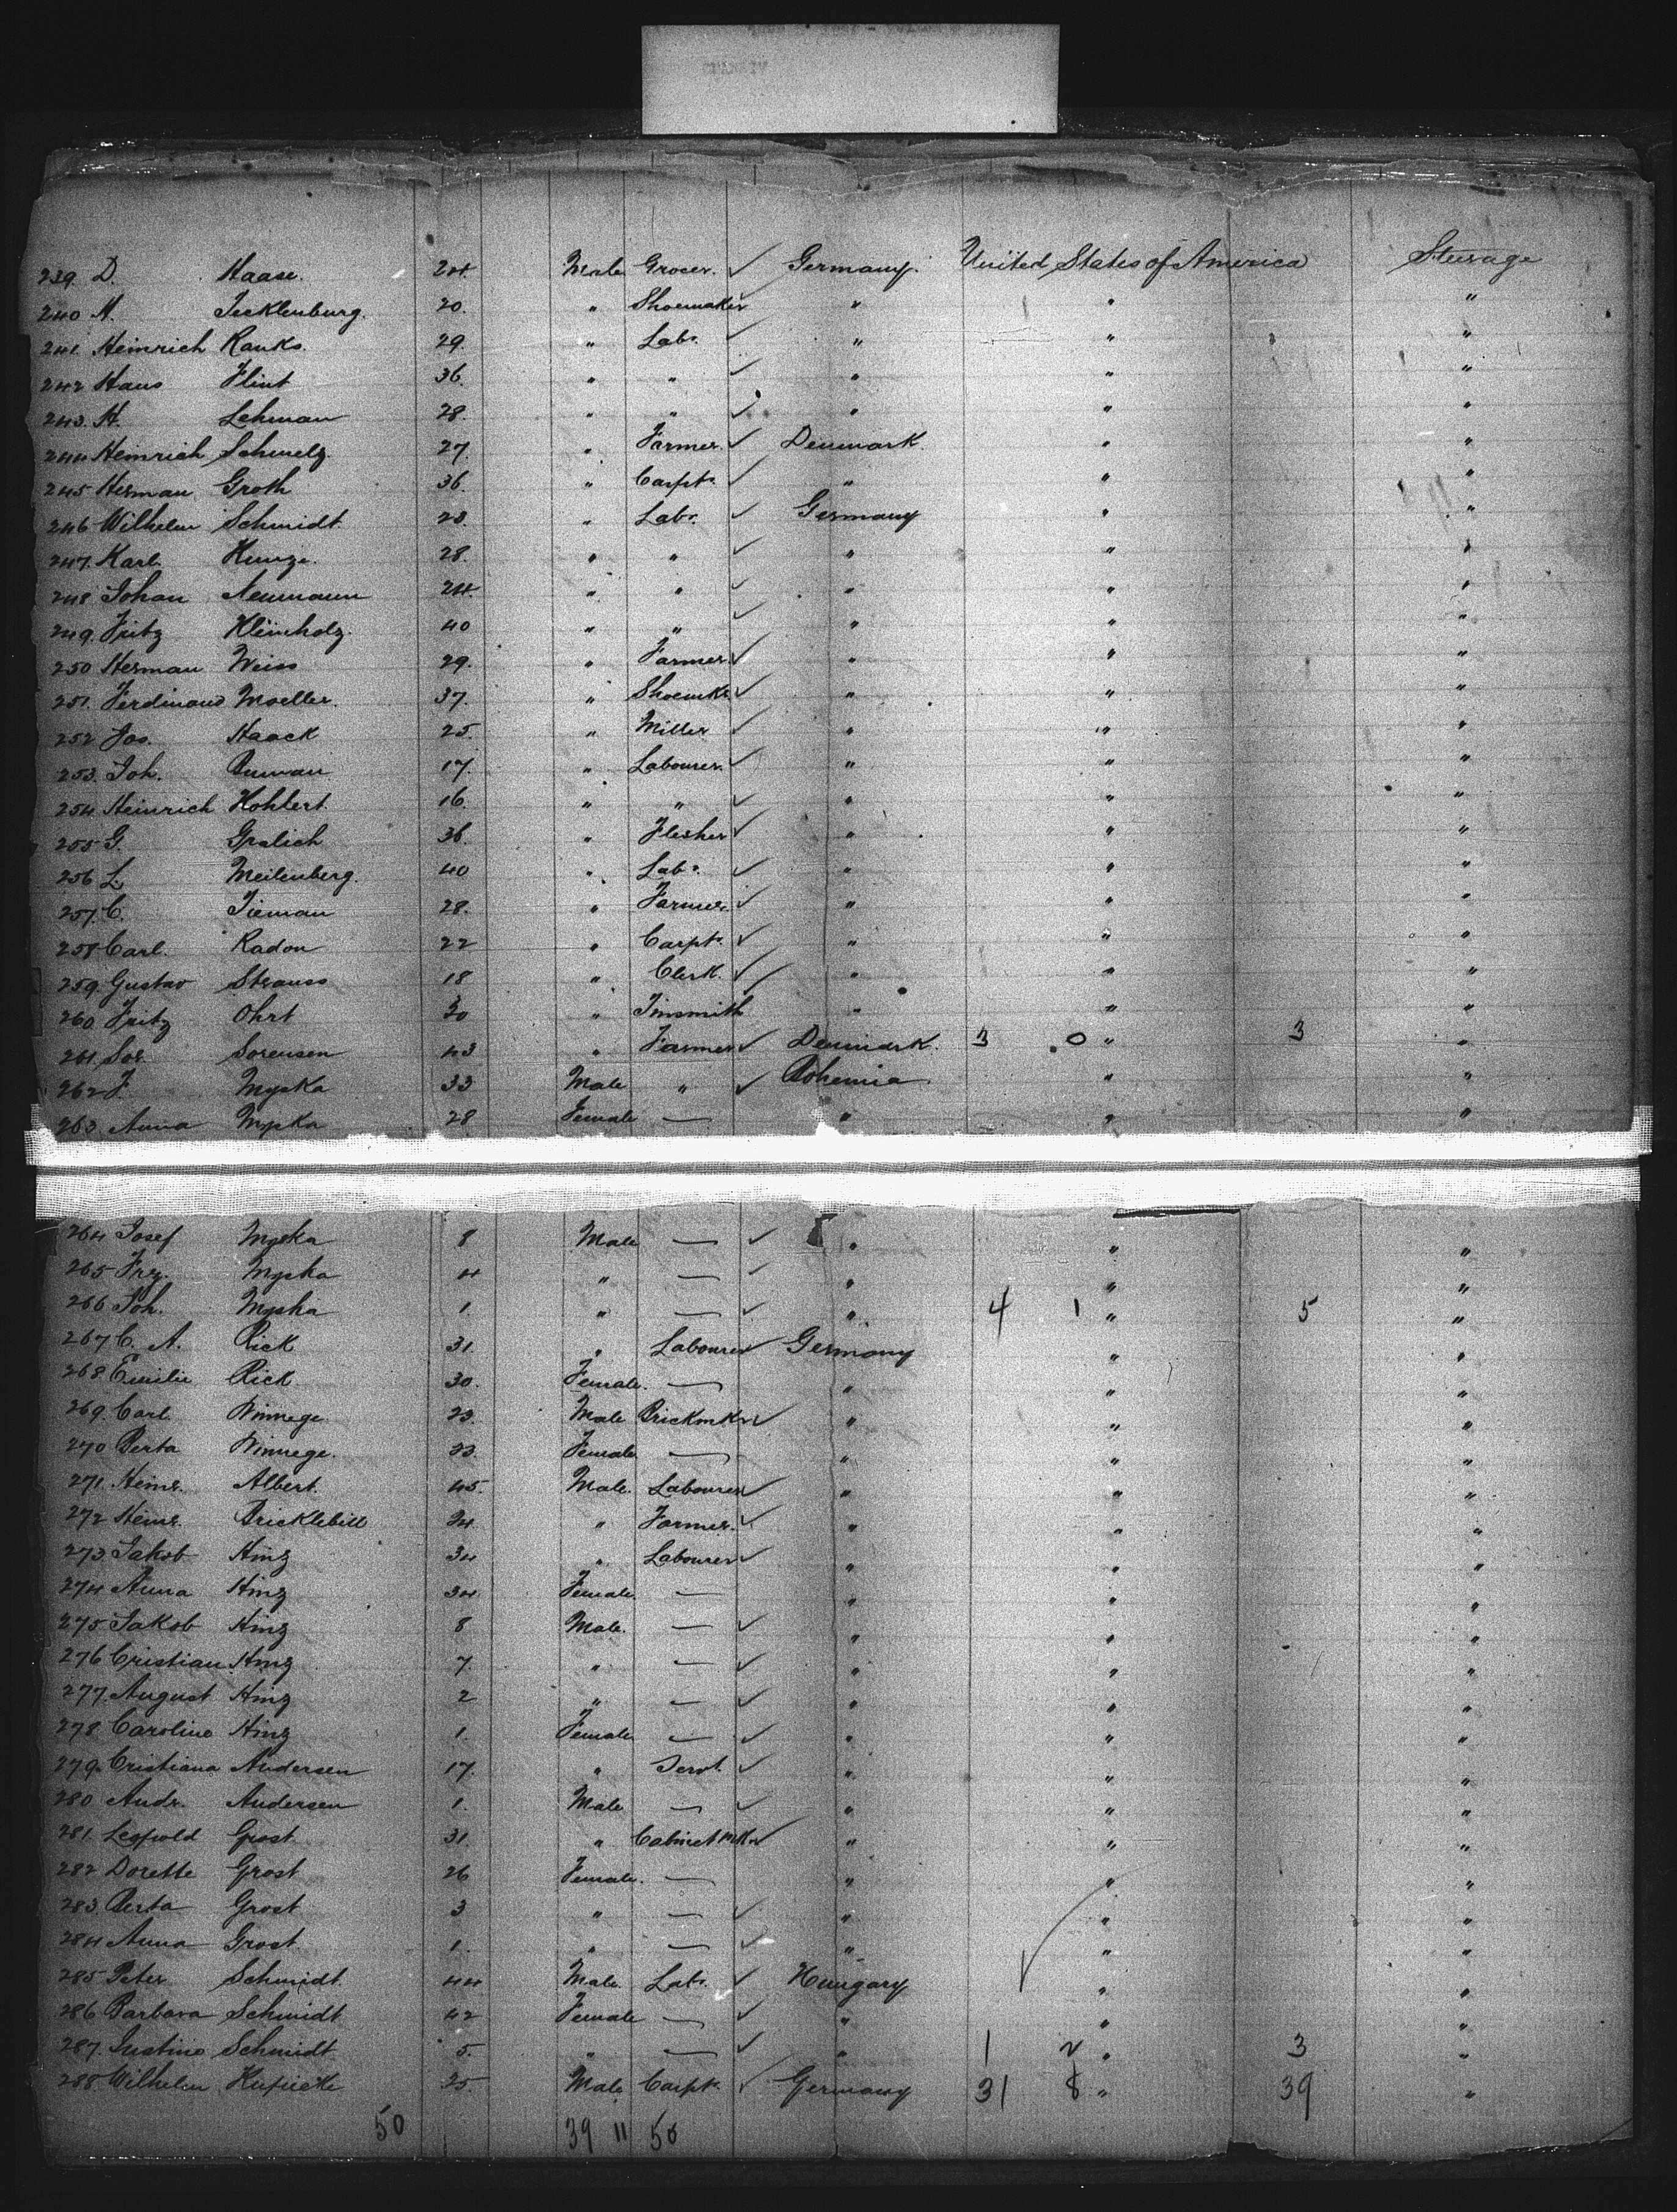 239. D. Haase. 24. Male Grocer. ✓ Germany. United States of America Steerage
240 A. Tecklenburg. 20. " Shoemaker " " "
241. Heinrich Ranks. 29. " Labr. ✓ " " "
242 Hans Flint 36. " " ✓ " " "
243. H. Lehman 28. " " ✓ " " "
244 Heinrich Schmelz 27. " Farmer. ✓ Denmark. " "
245 Herman Groth 36. " Carptr. ✓ " " "
246 Wilhelm Schmidt. 23. " Labr. ✓ Germany " "
247. Karl Kunze. 28. " " ✓ " " "
248 Johan Neumann 24. " " ✓ " " "
249. Fritz Kleinholz. 40 " " ✓ " " "
250 Herman Weiss 29. " Farmer. ✓ " " "
251. Ferdinand Moeller. 37. " Shoemkr ✓ " " "
252 Jos. Haack 25. " Miller ✓ " " "
253. Joh. 17. " Labourer. ✓ " " "
254. Heinrich Kohlert. 16. " " ✓ " " "
255 G. Gralich 36. " Flesher ✓ " " "
256 L. Meilenberg. 40 " Labr. ✓ " " "
257. C. Tieman 28. " Farmer. ✓ " " "
258 Carl. Radon 22 " Carptr. ✓ " " "
259. Gustav Strauss 18 " Clerk. ✓ " " "
260. Fritz Ohrt 30 " Tinsmith " " "
261. Sor. Sorensen 43 " Farmer ✓ Denmark. 3 0 " 3 "
262 F. Myska 33 Male " ✓ Bohemia " "
263 Anna Myska 28 Female — " " "
264 Josef Myska 8 Male — ✓ " " "
265 Frz. Myska 4 " — ✓ " " "
266 Joh. Myska 1. " — ✓ " 4 1 " 5 "
267 C. A. Rick 31. " Labourer ✓ Germany " "
268. Emilie Rick 30. Female. — " " "
269. Carl Winnege 23. Male Brickmkr ✓ " " "
270 Berta Winnege. 23. Female — " " "
271. Heinr. Albert. 45. Male. Labourer ✓ " " "
272 Heinr. Bricklebill 34 " Farmer. ✓ " " "
273. Jakob Hinz 34 " Labourer ✓ " " "
274 Anna Hinz 34 Female — " " "
275 Jakob Hinz 8 Male. — ✓ " " "
276 Cristian Hinz 7. " — ✓ " " "
277. August Hinz 2 " — ✓ " " "
278. Caroline Hinz 1. Female — ✓ " " "
279. Cristiana Andersen 17. " Servt. ✓ " " "
280 Andr. Andersen 1. Male — ✓ " " "
281. Leopold Grost 31. " Cabinet mkr ✓ " " "
282 Dorette Grost 26 Female. — " " "
283. Berta Grost 3 " — ✓ " " "
284 Anna Grost 1. " — ✓ " " "
285 Peter Schmidt. 44 Male. Labr. ✓ Hungary ✓ " "
286 Barbara Schmidt 42 Female — ✓ " " "
287. Justine Schmidt. 5. " — ✓ " 1 2 " 3 "
288. Wilhelm 25 Male Carptr. ✓ Germany 31 8 " 39 "
50 39 11 50